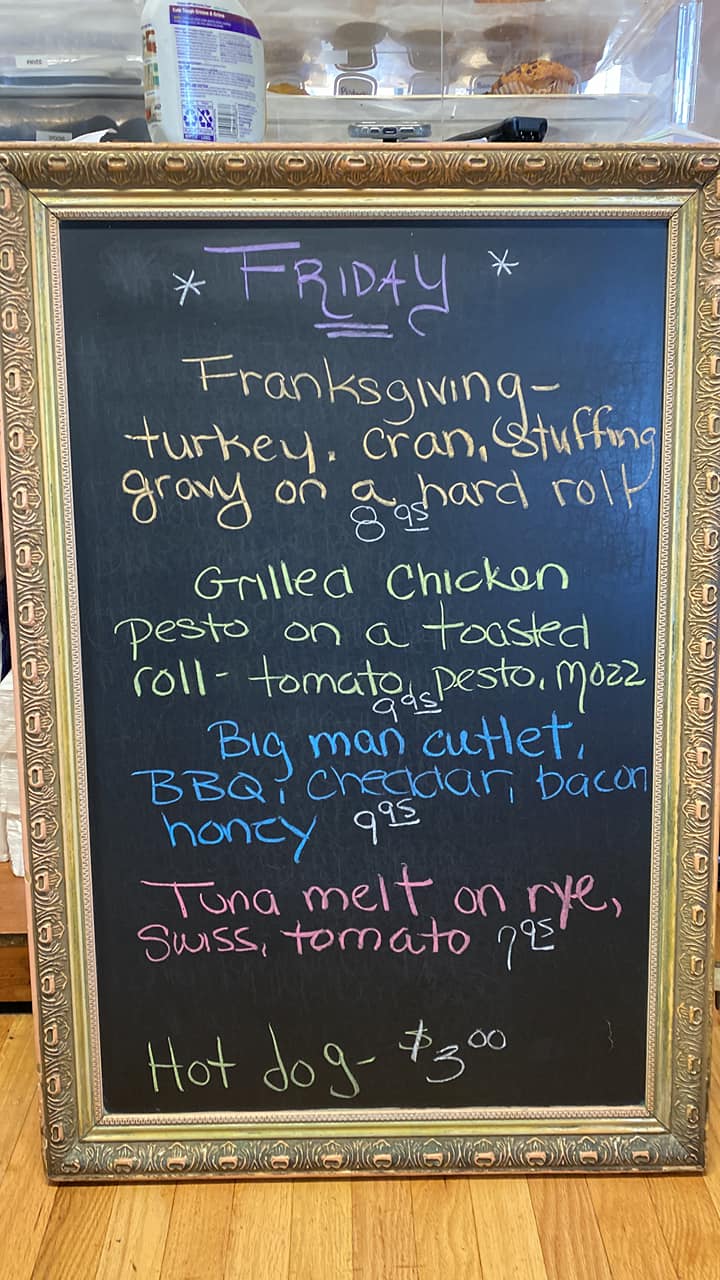 * FRIDAY *
Franksgiving-
turkey, cran, stuffing
gravy on a hard roll
8 95
Grilled Chicken
pesto on a toasted
roll- tomato, pesto, mozz
9 95
Big man cutlet,
BBQ, cheddar, bacon
honey 9 95
Tuna melt on rye,
Swiss, tomato 7 95
Hot dog- $3 00